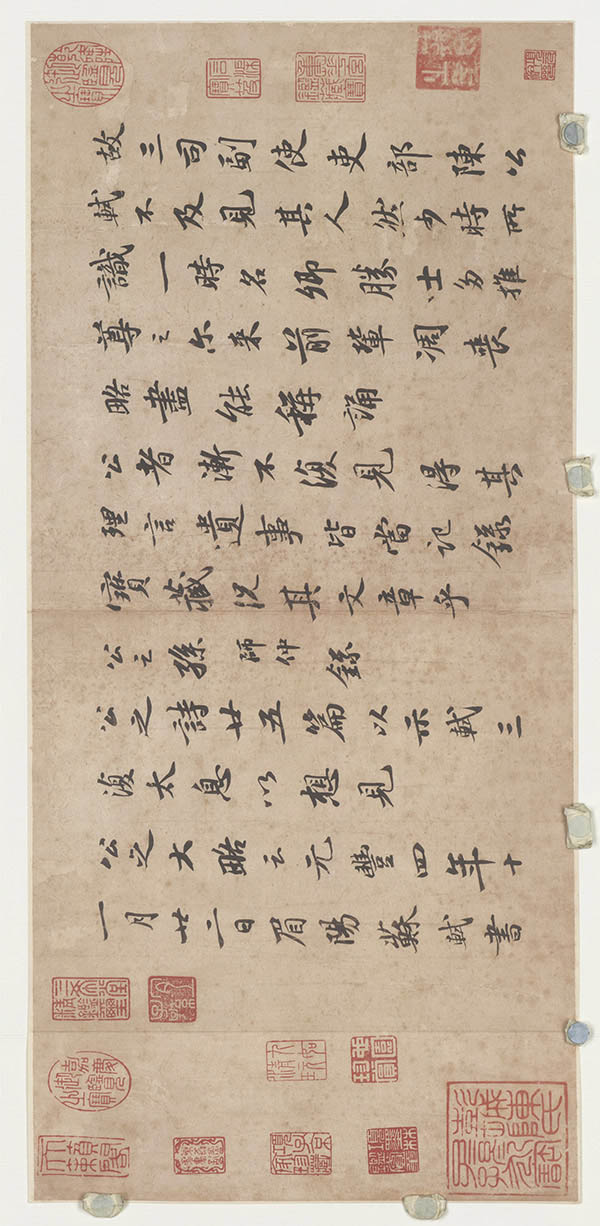 故三司副使吏部陳公
軾不及見其人然少時所
識一時名卿勝士多推
尊之尔来前輩凋喪
略盡能稱誦
公者漸不復見得其
理言遺事皆當記錄
寶藏况其文章乎
公之孫師仲錄
公之詩廿五篇以示軾三
復太息以想見
公之大略云元豐四年十
一月廿二日眉陽蘇軾書
三希堂精鑑璽
宜子孫
嘉慶御覽之寶
天籟閣